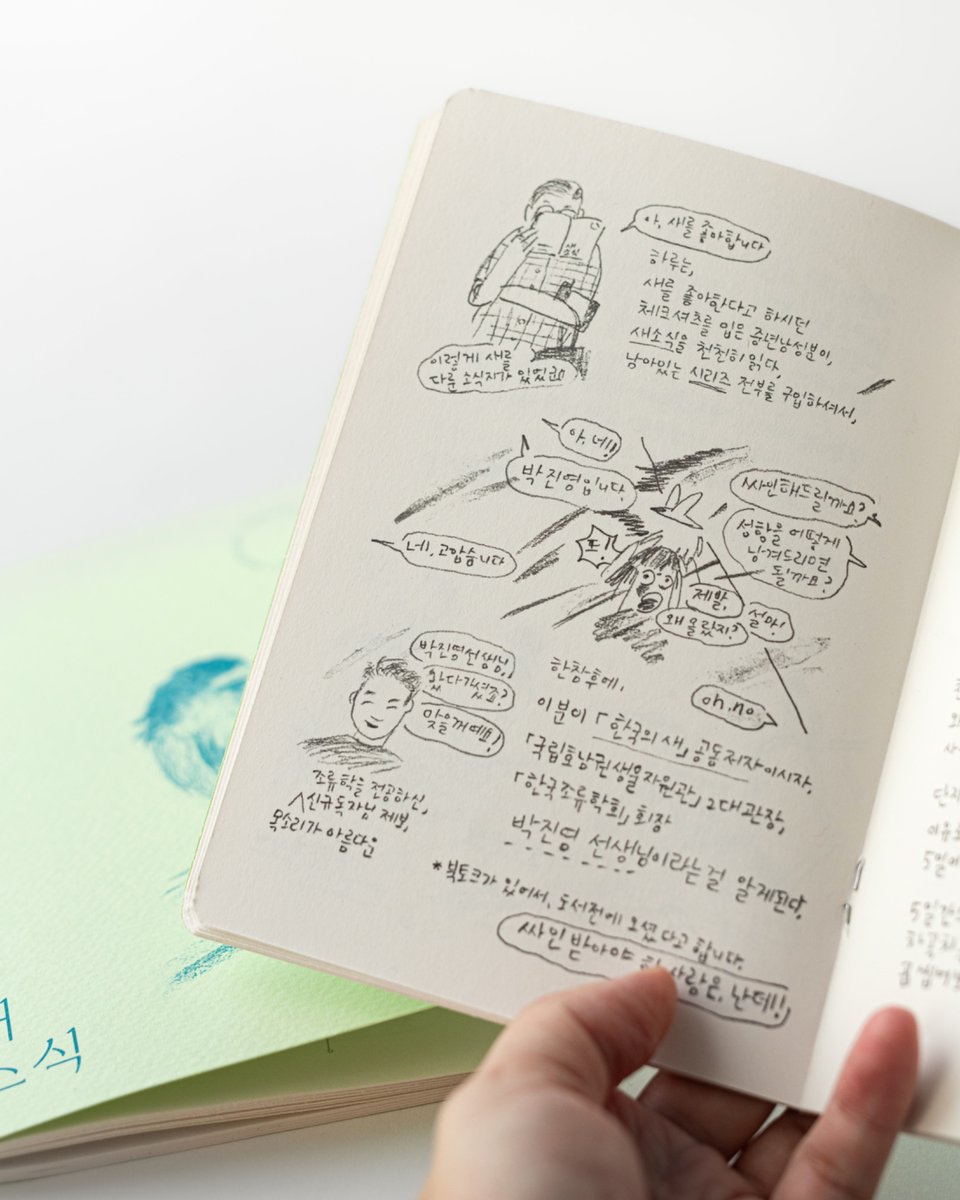 아, 새를 좋아합니다
하루는,
새를 좋아한다고 하시던
체크셔츠를 입은 중년남성분이,
새소식을 천천히 읽다,
남아있는 시리즈 전부를 구입하셔서,
새소식
이렇게 새를
다룬 소식지가 있었군요!
아, 네!!
박진영입니다.
싸인해드릴까요?
성함을 어떻게
남겨드리면
될까요?
네!, 고맙습니다
뜨!
제발,
왜 몰랐지?
설마!
oh, no.
박진영선생님,
왔다가셨죠?
맞을꺼예요!
조류학을 전공하신,
신규독자님 제보,
목소리가 아름다운
한참후에,
이분이 「한국의 새」 공동저자이시자,
「국립호남권생물자원관」 2대관장,
「한국조류학회」 회장
박진영 선생님이라는걸 알게된다.
*북토크가 있어서, 도서전에 오셨다고 합니다.
싸인받아야 할 사람은, 난데!!
단지
5일에
5일간
소식